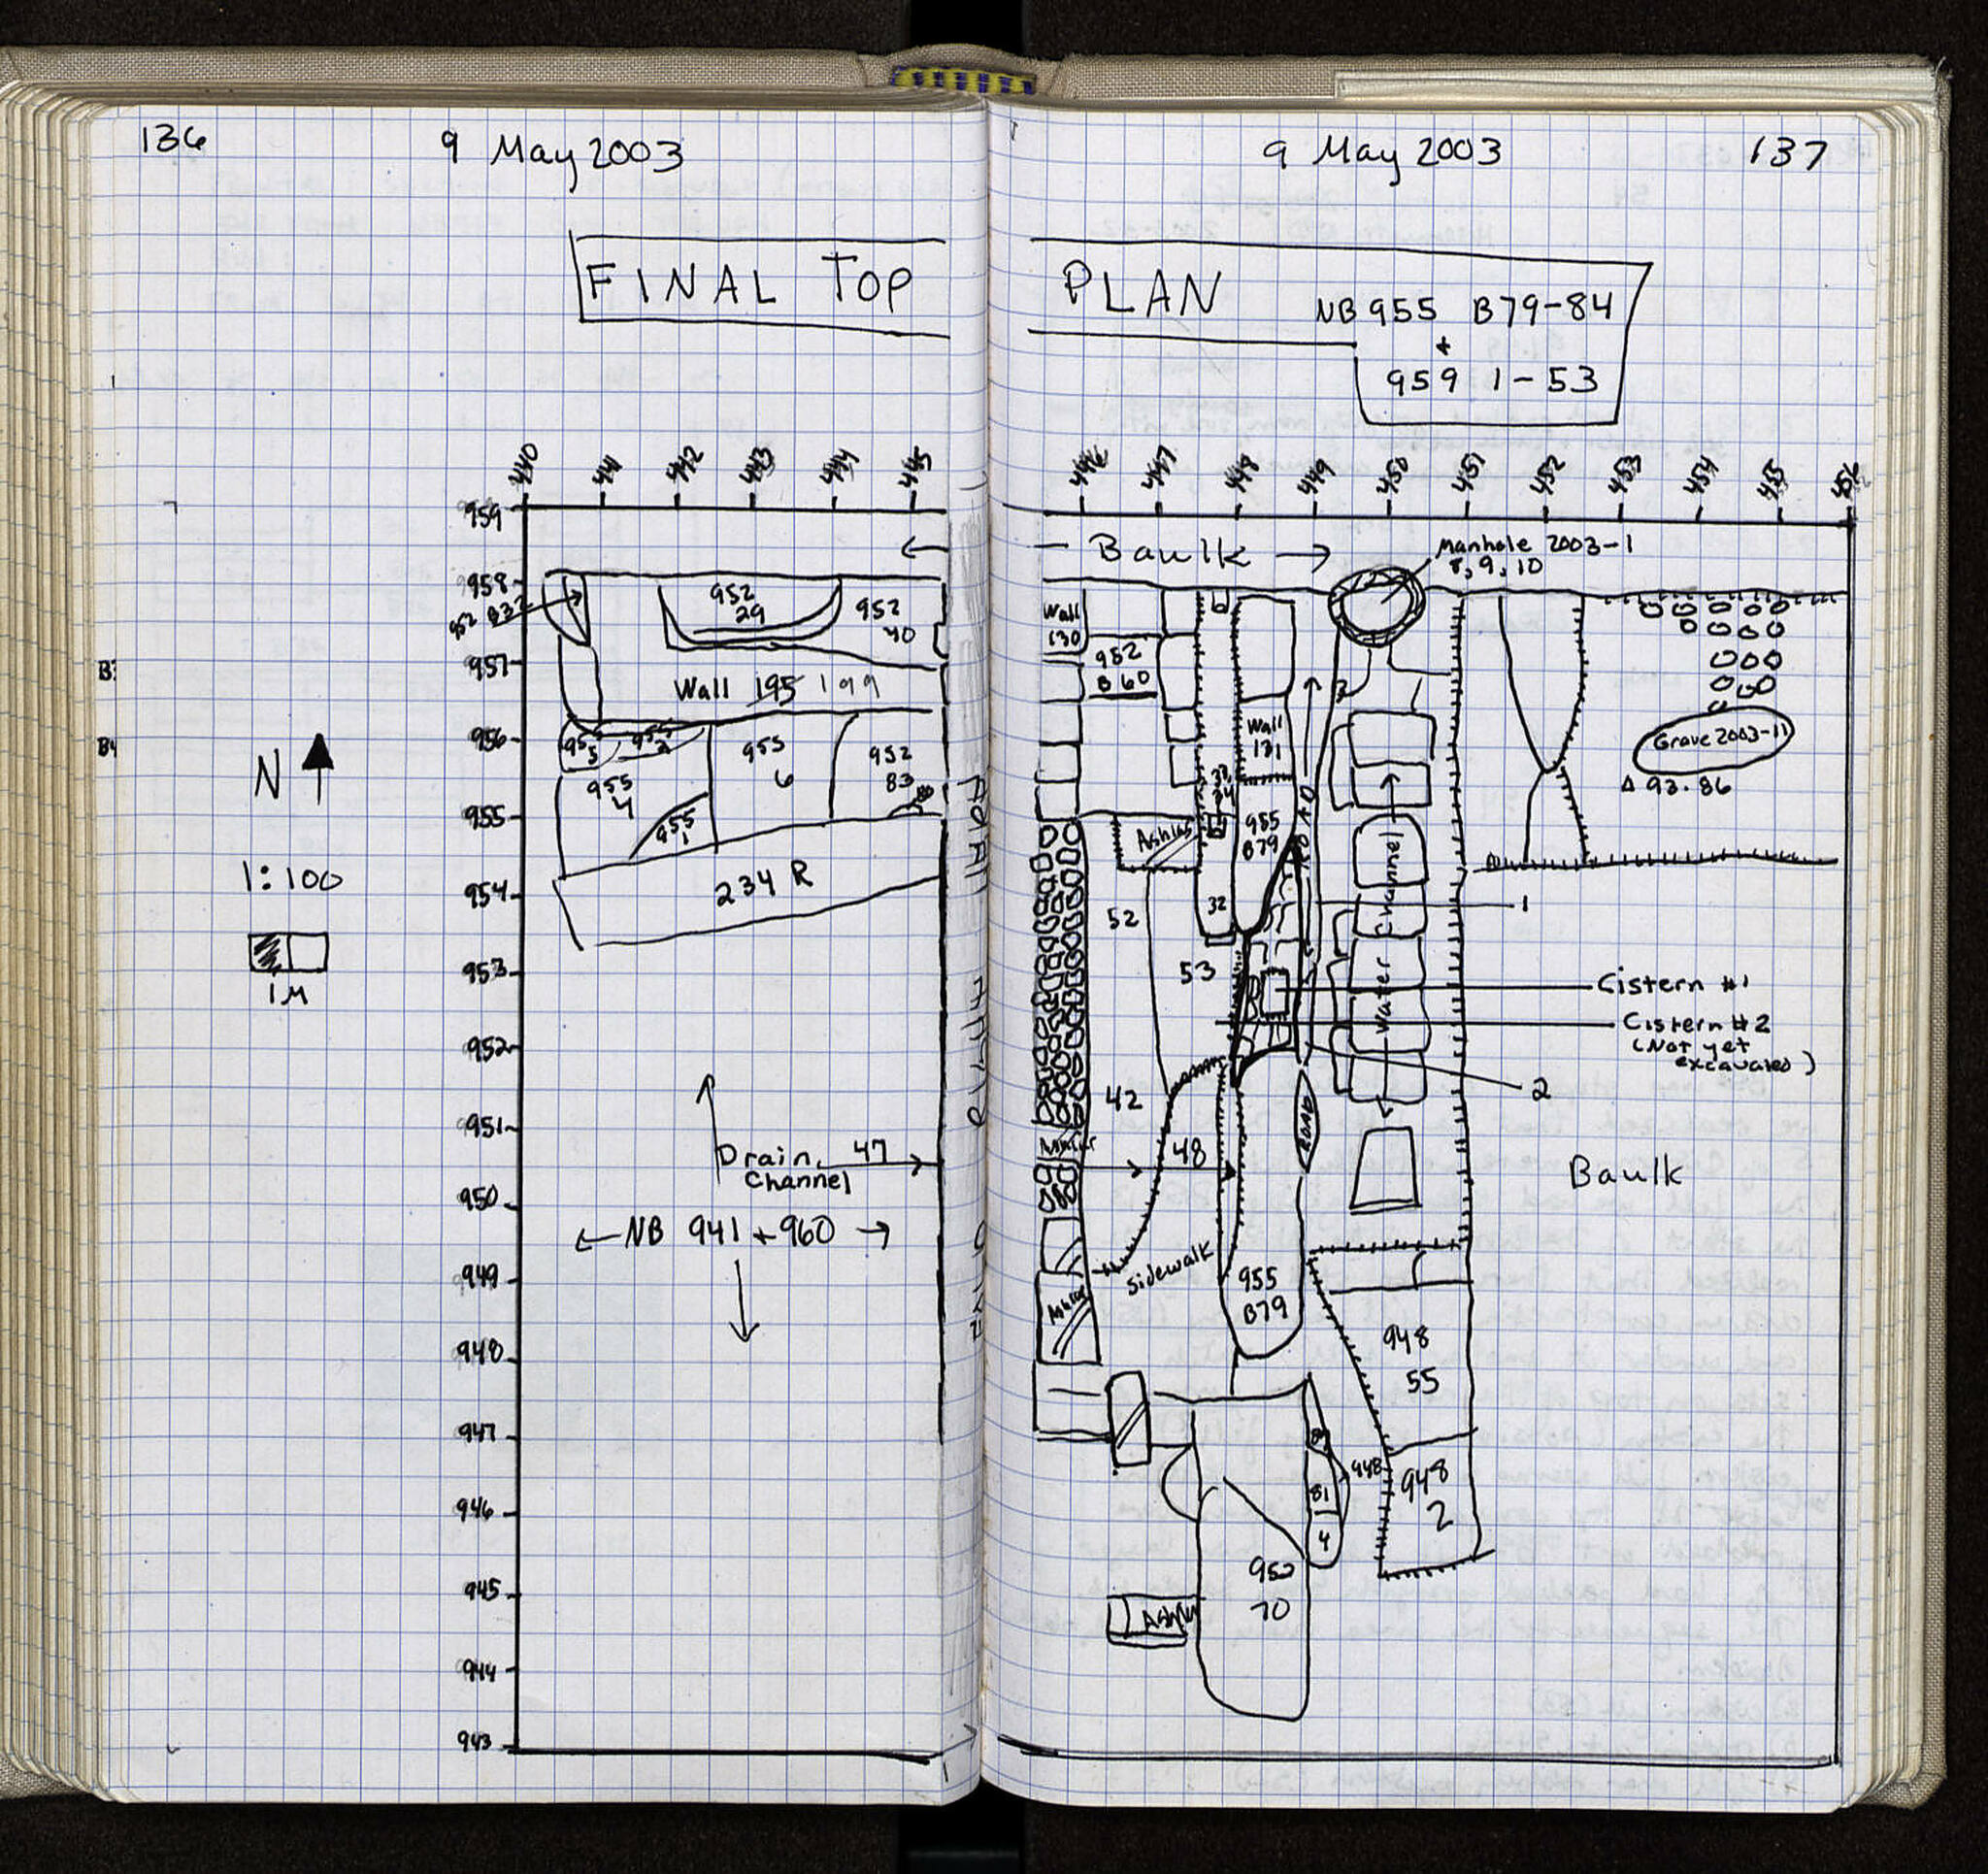 136
9 May 2003
FINAL TOP
440 441 442 443 444 445
959
958
957
956
955
954
953
952
951
950
949
948
947
946
945
944
943
952 B32
952
29
952
40
Wall 195 199
955
5
955
2
955
4
955
6
952
83
955
1
234 R
N
1:100
1M
Drain
Channel
47
NB 941 + 960
B3
B4
9 May 2003
137
PLAN
NB 955 B79-84
+
959 1-53
446 447 448 449 450 451 452 453 454 455 456
Baulk
Manhole 2003-1
8, 9, 10
Wall
130
952
B 60
Wall
131
33
34
3
Grave 2003-11
Δ 93.86
Ashlar
955
B79
ROAD
Water Channel
1
52
32
53
Cistern #1
Cistern #2
(Not yet
excavated)
2
42
ROAD
48
Baulk
Sidewalk
Ashlar
955
B79
948
55
948
948
2
81
4
952
70
Ashlar